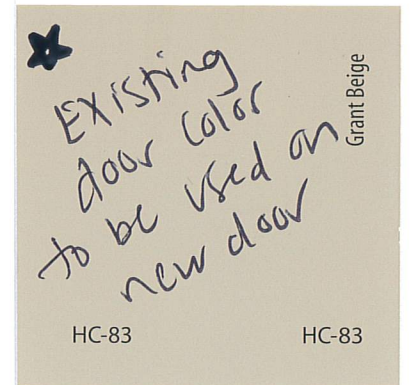 Existing
door color
to be used on
new door
Grant Beige
HC-83
HC-83